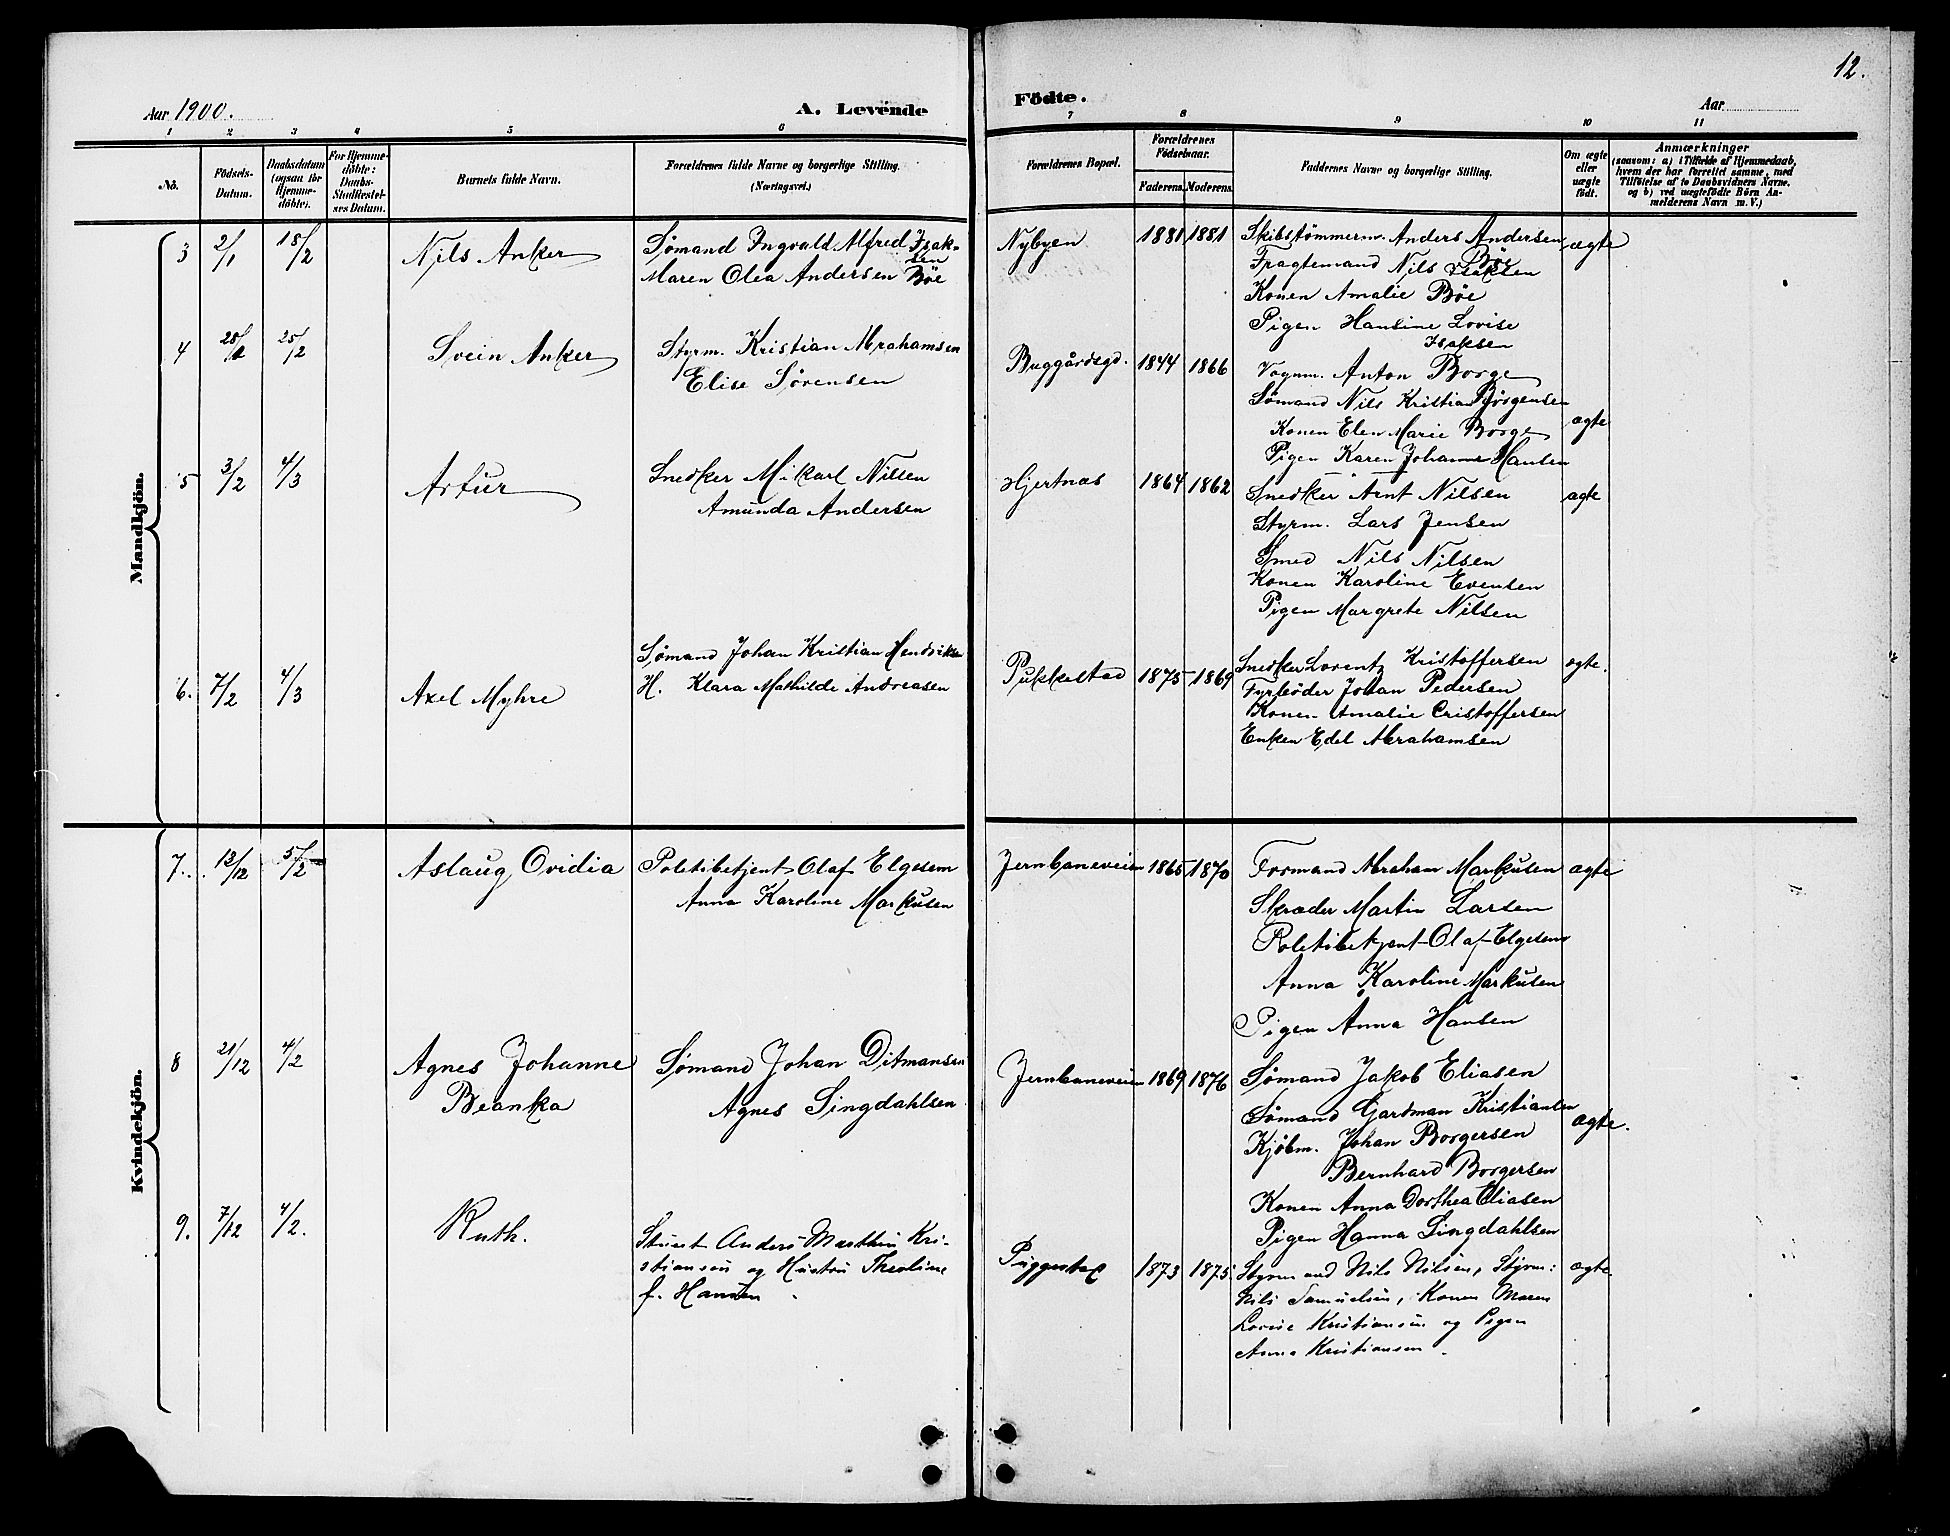 12.
Aar 1900.
A. Levende
Födte.
Aar
1 2 3 4 5 6 7 8 9 10 11
No.
Födsels-Datum.
Daabsdatum (ogsaa for Hjemmedöbte).
For Hjemmedöbte: Daabs-Stadfæstelses Datum.
Barnets fulde Navn.
Forældrenes fulde Navne og borgerlige Stilling.
(Næringsvei.)
Forældrenes Bopæl.
Forældrenes Födselsaar.
Faderens. Moderens.
Faddernes Navne og borgerlige Stilling.
Om ægte eller uægte födt.
Anmærkninger
(saasom: a) i Tilfælde af Hjemmedaab,
hvem der har forrettet samme, med
Tilföielse af to Daabsvidners Navne,
og b) ved uægtefödte Börn An-
melderens Navn m. V.)
Mandkjön.
3 2/1 18/2 Nils Anker
Sømand Ingvald Alfred Isak-
sen
Maren Olea Andersen Böe
Nybyen 1881 1881
Skibstömmerm. Anders Andersen
Böe
Fragtemand Nils Isaksen
Konen Amalie Böe
Pigen Hansine Lovise
Isaksen
ægte
4 25/2 Svein Anker
Styrm. Kristian Abrahamsen
Elise Sörensen
Buggårdsgd. 1844 1866
Vognm. Anton Borge
Sømand Nils Kristian Jörgensen
Konen Elen Marie Borge
Pigen Karen Johanne Hansen
ægte
5 3/2 4/3 Artur
Snedker Mikael Nilsen
Amunda Andersen
Hjertnæs 1864 1862
Snedker Arnt Nilsen
Styrm. Lars Jensen
Smed Nils Nilsen
Konen Karoline Evensen
Pigen Margrete Nilsen
ægte
6. 7/2 4/3 Axel Myhre
Sømand Johan Kristian Hendriksen
H. Klara Mathilde Andreasen
Pukkestad 1875 1869
Snedker Lorentz Kristoffersen
Fyrböder Johan Pedersen
Konen Amalie Cristoffersen
Enken Edel Abrahamsen
ægte.
Kvindekjön.
7. 12/12 5/2 Aslaug Ovidia
Politibetjent Olaf Elgesem
Anna Karoline Markusen
Jernbaneveien 1865 1870
Formand Abraham Markusen
Skræder Martin Larsen
Politibetjent Olaf Elgesem
Anna Karoline Markusen
Pigen Anna Hansen
ægte
8 21/12 4/2 Agnes Johanne
Beanka
Sømand Johan Ditmansen
Agnes Lingdahlsen
Jernbaneveien 1869 1876
Sømand Jakob Eliasen
Sømand Gardman Kristiansen
Kjöbm. Johan Borgersen
Bernhard Borgersen
Konen Anna Dorthea Eliasen
Pigen Hanna Lingdahlsen
ægte.
9. 7/12 4/2. Ruth.
Stuert Anders Marthin Kri-
stiansen og Hustru Theoline
f. Hansen
Puggestad 1873 1875.
Styrmand Nils Nilsen, Styrm:
Nils Samuelsen, Konen Maren
Lovise Kristiansen og Pigen
Anna Kristiansen.
ægte